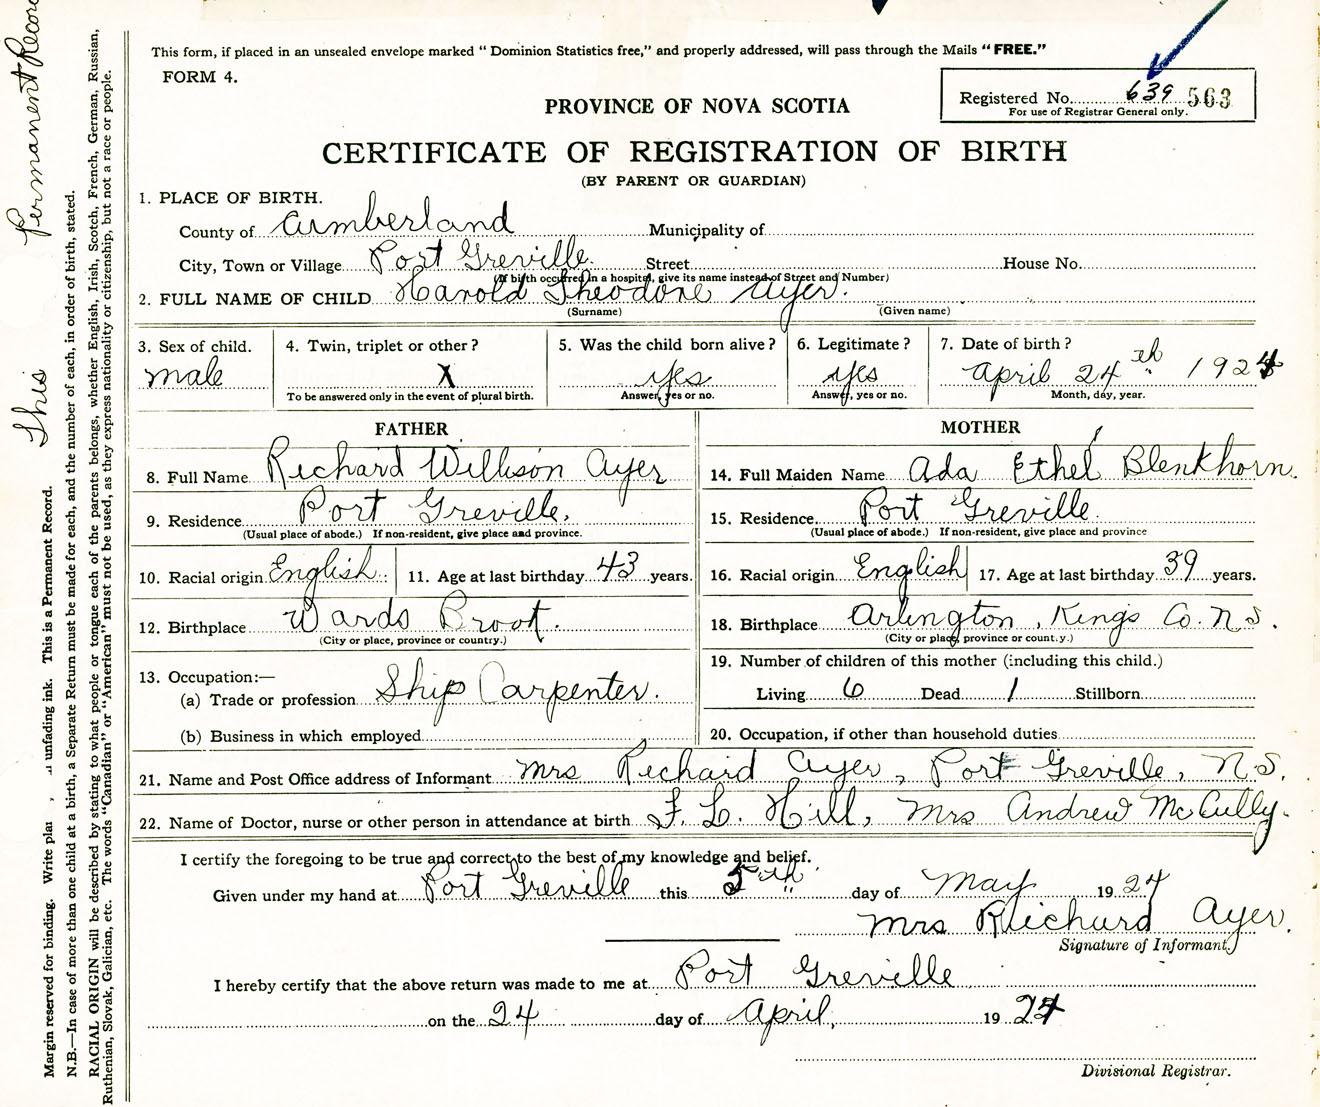 This form, if placed in an unsealed envelope marked "Dominion Statistics free," and properly addressed, will pass through the Mails "FREE."
FORM 4.
Registered No. 639 563
For use of Registrar General only.
PROVINCE OF NOVA SCOTIA
CERTIFICATE OF REGISTRATION OF BIRTH
(BY PARENT OR GUARDIAN)
1. PLACE OF BIRTH.
County of Cumberland Municipality of
City, Town or Village Port Greville. Street House No.
(If birth occurred in a hospital, give its name instead of Street and Number)
2. FULL NAME OF CHILD Harold Theodore Ayer.
(Surname) (Given name)
3. Sex of child. 4. Twin, triplet or other? 5. Was the child born alive? 6. Legitimate? 7. Date of birth?
male X yes yes April 24th 1924
To be answered only in the event of plural birth. Answer, yes or no. Answer, yes or no. Month, day, year.
FATHER MOTHER
8. Full Name Richard Willison Ayer 14. Full Maiden Name Ada Ethel Blenkhorn.
9. Residence Port Greville. 15. Residence Port Greville.
(Usual place of abode.) If non-resident, give place and province. (Usual place of abode.) If non-resident, give place and province
10. Racial origin English 11. Age at last birthday 43 years. 16. Racial origin English 17. Age at last birthday 39 years.
12. Birthplace Wards Brook. 18. Birthplace Arlington, Kings Co. N.S.
(City or place, province or country.) (City or place, province or count.y.)
13. Occupation:— 19. Number of children of this mother (including this child.)
(a) Trade or profession Ship Carpenter. Living 6 Dead 1 Stillborn
(b) Business in which employed 20. Occupation, if other than household duties
21. Name and Post Office address of Informant Mrs Richard Ayer, Port Greville, N.S.
22. Name of Doctor, nurse or other person in attendance at birth F. L. Hill, Mrs Andrew McCully.
I certify the foregoing to be true and correct to the best of my knowledge and belief.
Given under my hand at Port Greville this 5th day of May 1924
Mrs Richard Ayer.
Signature of Informant.
I hereby certify that the above return was made to me at Port Greville
on the 24 day of April, 1924
Divisional Registrar.
This Permanent Record
Margin reserved for binding. Write unfading ink. This is a Permanent Record.
N.B.—In case of more than one child at a birth, a Separate Return must be made for each, and the number of each, in order of birth, stated.
RACIAL ORIGIN will be described by stating to what people or tongue each of the parents belongs, whether English, Irish, Scotch, French, German, Russian,
Ruthenian, Slovak, Galician, etc. The words "Canadian" or "American" must not be used, as they express nationality or citizenship, but not a race or people.